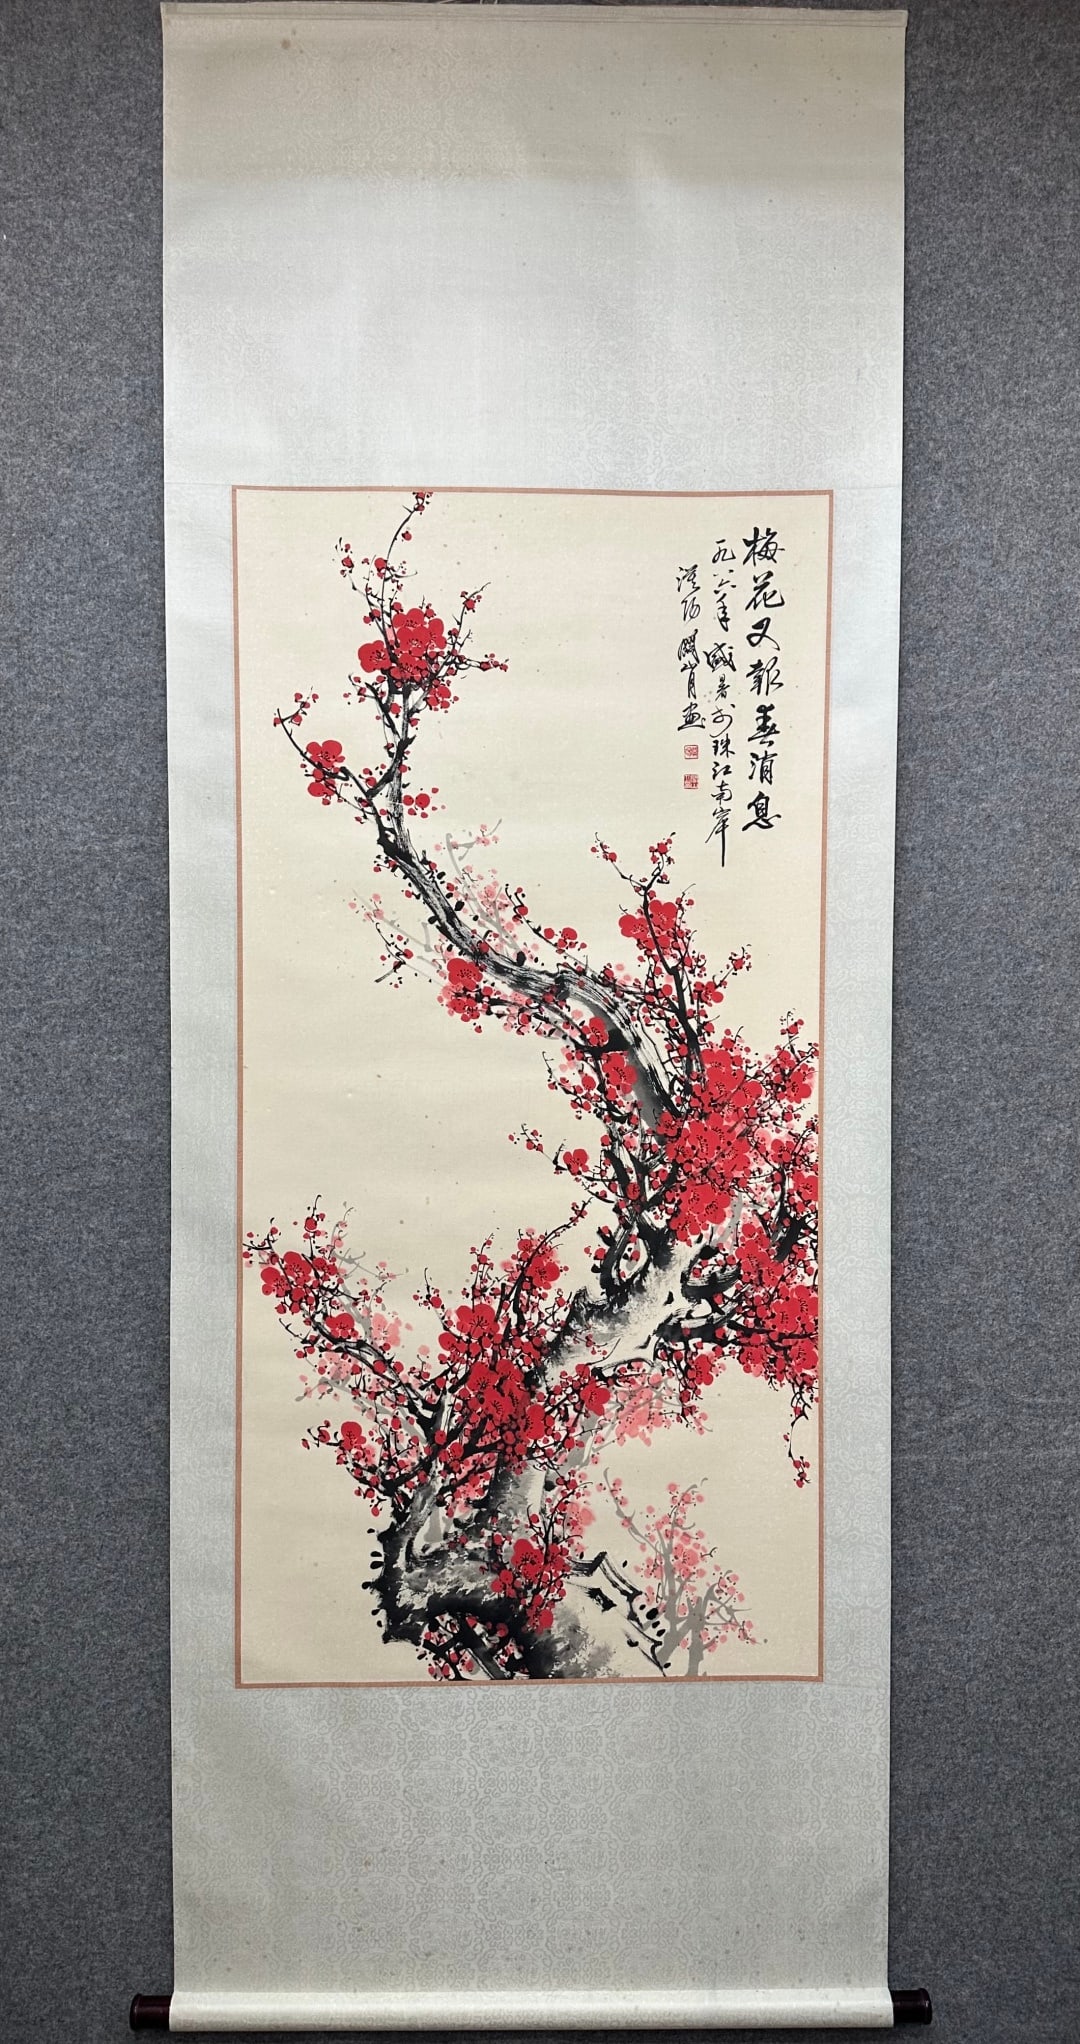 梅花又報春消息
一九八六年盛暑於珠江南岸
漢陽關山月畫